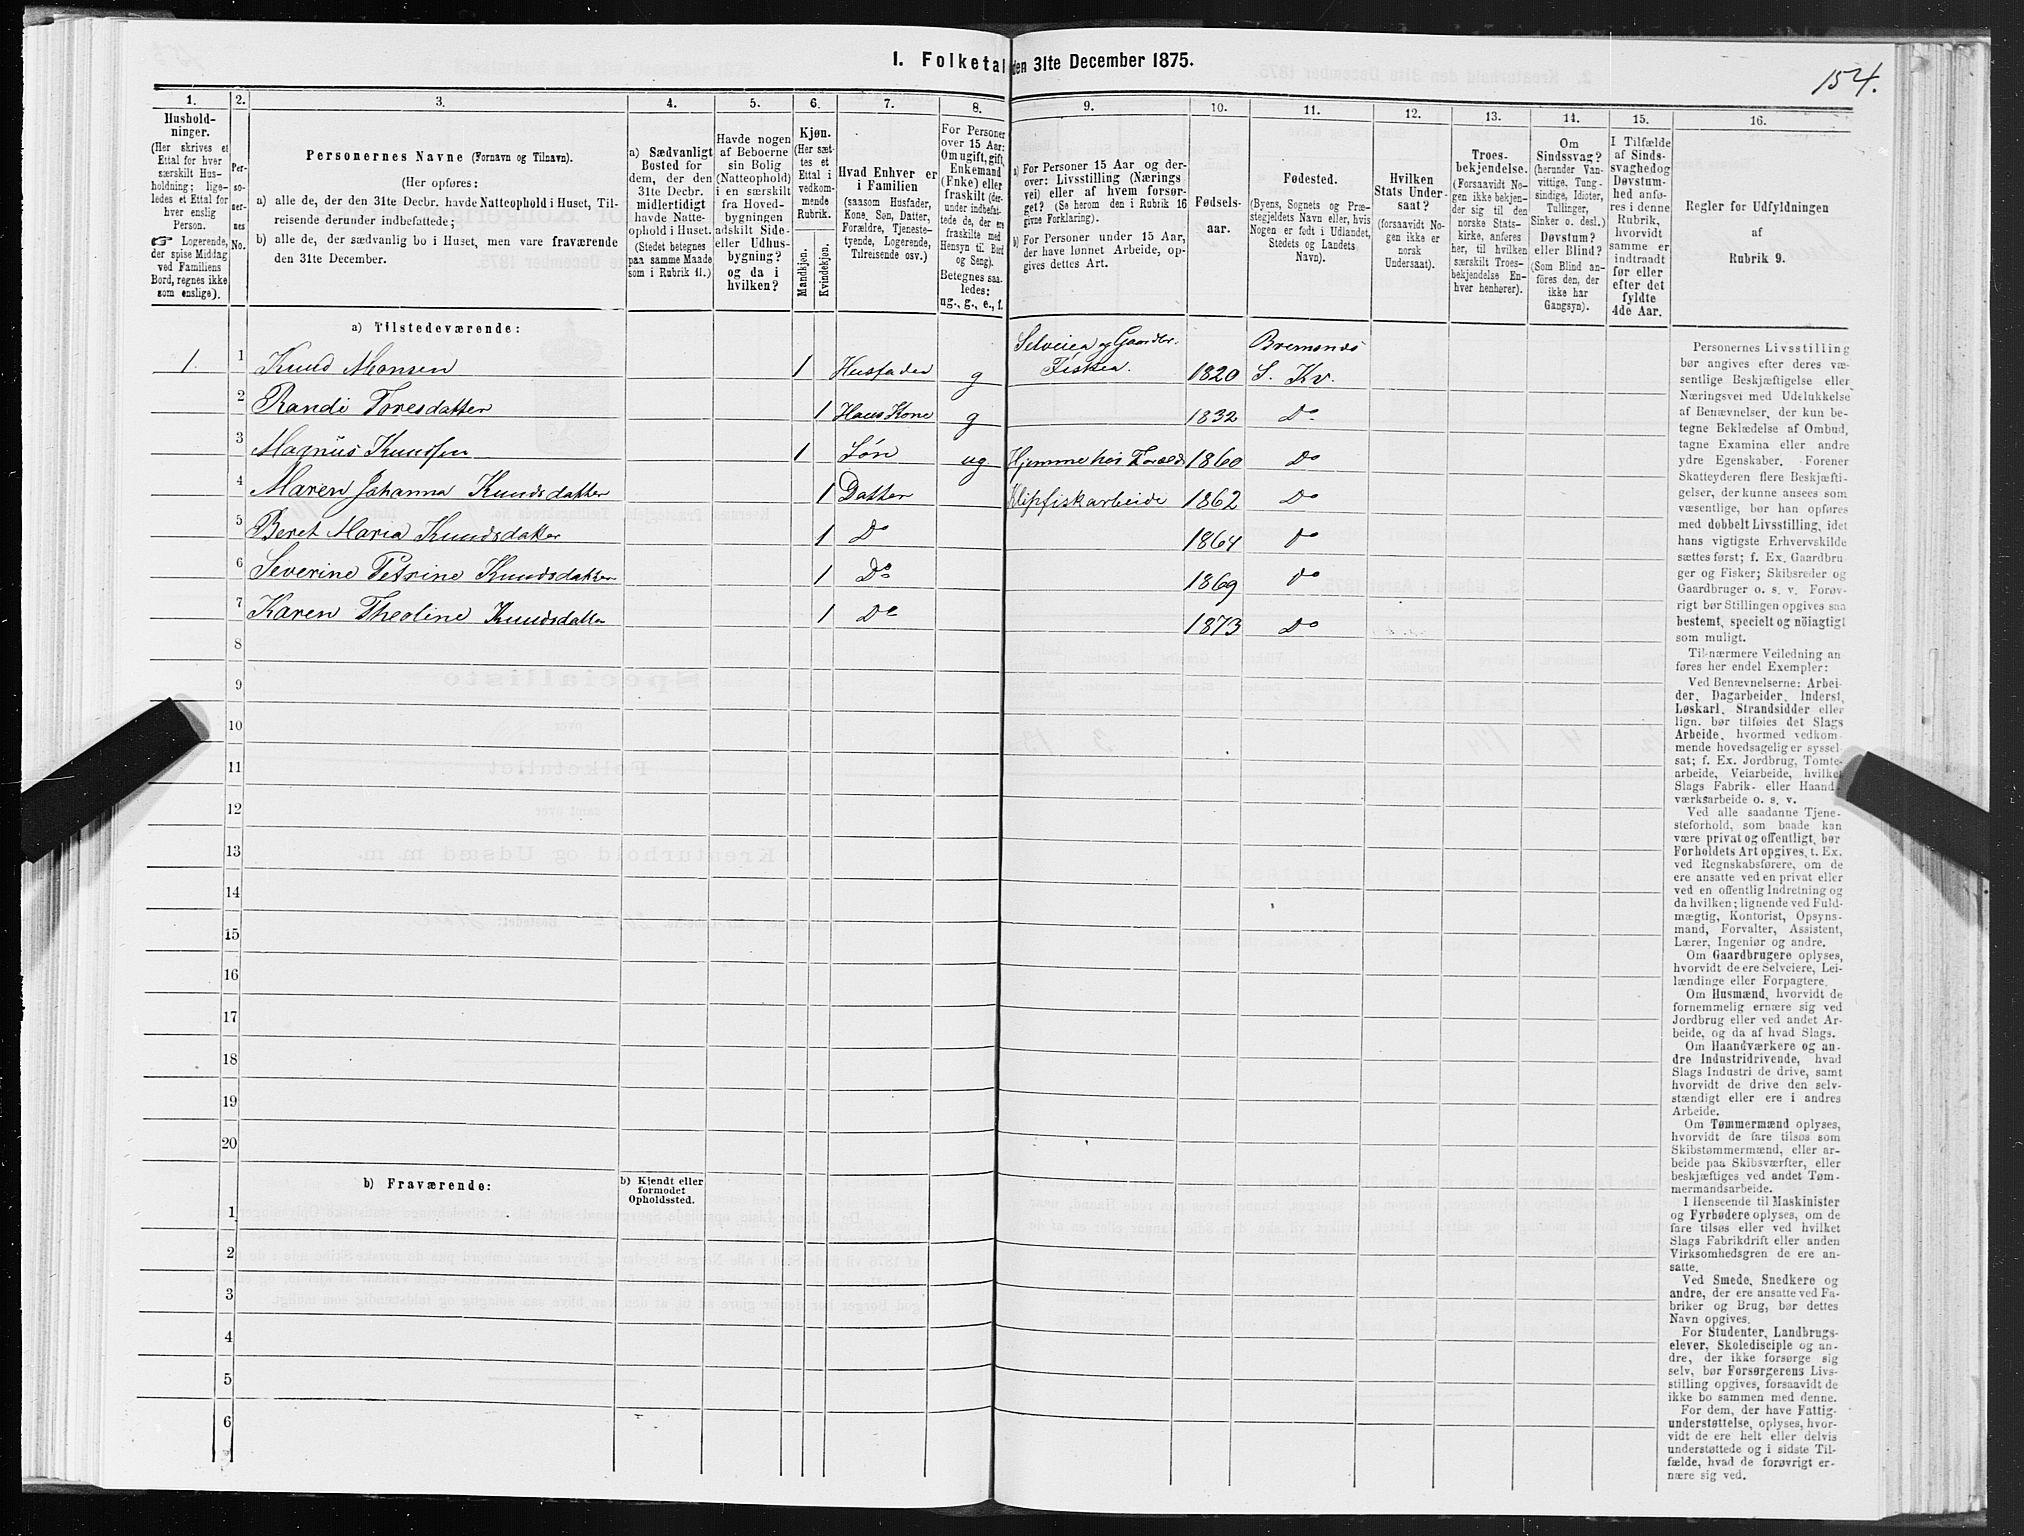 154.
1. Folketal den 31te December 1875.
1.
Hushold-
ninger.
(Her skrives et
Ettal for hver
særskilt Hus-
holdning; lige-
ledes et Ettal for
hver enslig
Person.
☞ Logerende,
der spise Middag
ved Familiens
Bord, regnes ikke
som enslige).
2.
Per-
so-
ner-
nes
No.
3.
Personernes Navne (Fornavn og Tilnavn).
(Her opføres:
a) alle de, der den 31te Decbr. havde Natteophold i Huset, Til-
reisende derunder indbefattede;
b) alle de, der sædvanlig bo i Huset, men vare fraværende
den 31te December.
4.
a) Sædvanligt
Bosted for
dem, der den
31te Decbr.
midlertidigt
havde Natte-
ophold i Huset.
(Stedet betegnes
paa samme Maade
som i Rubrik 11.)
5.
Havde nogen
af Beboerne
sin Bolig
(Natteophold)
i en særskilt
fra Hoved-
bygningen
adskilt Side-
eller Udhus-
bygning?
og da i
hvilken?
6.
Kjøn.
(Her sæt-
tes et
Ettal i
vedkom-
mende
Rubrik.
Mandkjøn.
Kvindekjøn.
7.
Hvad Enhver er
i Familien
(saasom Husfader,
Kone, Søn, Datter,
Forældre, Tjeneste-
tyende, Logerende,
Tilreisende osv.)
8.
For Personer
over 15 Aar:
Om ugift, gift,
Enkemand
(Enke) eller
fraskilt (der-
under indbefat-
tede de, der ere
fraskilte med
Hensyn til Bord
og Seng).
Betegnes saa-
ledes:
ug., g., e., f.
9.
a) For Personer 15 Aar og der-
over: Livsstilling (Nærings
vei) eller af hvem forsør-
get? (Se herom den i Rubrik 16
givne Forklaring).
b) For Personer under 15 Aar,
der have lønnet Arbeide, op-
gives dettes Art.
10.
Fødsels-
aar.
11.
Fødested.
(Byens, Sognets og Præ-
stegjeldets Navn eller, hvis
Nogen er født i Udlandet,
Stedets og Landets
Navn).
12.
Hvilken
Stats Under-
saat?
(forsaavidt No-
gen ikke er
norsk
Undersaat).
13.
Troes-
bekjendelse.
(Forsaavidt No-
gen ikke bekjen-
der sig til den
norske Stats-
kirke, anføres
her, til hvilken
særskilt Troes-
bekjendelse En-
hver henhører).
14.
Om
Sindssvag?
(herunder Van-
vittige, Tung-
sindige, Idioter,
Tullinger,
Sinker o. desl.)
Døvstum?
eller Blind?
(Som Blind an-
føres den, der
ikke har
Gangsyn).
15.
I Tilfælde
af Sinds-
svaghed og
Døvstum-
hed anfø-
res i denne
Rubrik,
hvorvidt
samme er
indtraadt
før eller
efter det
fyldte
4de Aar.
16.
Regler for Udfyldningen
af
Rubrik 9.
a) Tilstedeværende:
1. 1 Knud Monsen 1 Husfader g Selveier og Gaardbr. Fisker. 1820 Bremsnds S. Kv.
2 Randi Toresdatter 1 Haus Kone g 1832 Do
3 Magnus Knudsen 1 Søn ug Hjemme hos Foræld 1860 Do
4 Maren Johanna Knudsdatter 1 Datter Klipfiskarbeide 1862 Do
5 Beret Maria Knudsdatter 1 Do 1864 Do
6 Severine Petrine Knudsdatter 1 Do 1869 Do
7 Karen Theoline Knudsdatter 1 Do 1873 Do
8
9
10
11
12
13
14
15
16
17
18
19
20
b) Fraværende:
b) Kjendt eller
formodet
Opholdssted.
1
2
3
4
5
6
7
Personernes Livsstilling
bør angives efter deres væ-
sentlige Beskjæftigelse eller
Næringsvei med Udelukkelse
af Benævnelser, der kun be-
tegne Beklædelse af Ombud,
tagne Examina eller andre
ydre Egenskaber. Forener
Skatteyderen flere Beskjæfti-
gelser, der kunne ansees som
væsentlige, bør han opføres
med dobbelt Livsstilling, idet
hans vigtigste Erhvervskilde
sættes først; f. Ex. Gaardbru-
ger og Fisker; Skibsreder og
Gaardbruger o. s. v. Forøv-
rigt bør Stillingen opgives saa
bestemt, specielt og nöiagtigt
som muligt.
Til nærmere Veiledning an
føres her endel Exempler:
Ved Benævnelserne: Arbei-
der, Dagarbeider, Inderst,
Løskarl, Strandsidder eller
lign. bør tilføies det Slags
Arbeide, hvormed vedkom-
mende hovedsagelig er syssel-
sat; f. Ex. Jordbrug, Tomte-
arbeide, Veiarbeide, hvilket
Slags Fabrik- eller Haand-
værksarbeide o. s. v.
Ved alle saadanne Tjene-
steforhold, som baade kan
være privat og offentligt, bør
Forholdets Art opgives, t. Ex.
ved Regnskabsførere, om de
ere ansatte ved en privat eller
ved en offentlig Indretning og
da hvilken; lignende ved Fuld-
mægtig, Kontorist, Opsyns-
mand, Forvalter, Assistent,
Lærer, Ingeniør og andre.
Om Gaardbrugere oplyses,
hvorvidt de ere Selveiere, Lei-
lændinge eller Forpagtere.
Om Husmænd, hvorvidt de
fornemmelig ernære sig ved
Jordbrug eller ved andet Ar-
beide, og da af hvad Slags.
Om Haandværkere og an-
dre Industridrivende, hvad
Slags Industri de drive, samt
hvorvidt de drive den selv-
stændigt eller ere i andres
Arbeide.
Om Tømmermænd oplyses,
hvorvidt de fare tilsøs som
Skibstømmermænd, eller ar-
beide paa Skibsværfter, eller
beskjæftiges ved andet Tøm-
mermandsarbeide.
I Henseende til Maskinister
og Fyrbødere oplyses, om de
fare tilsøs eller ved hvilket
Slags Fabrikdrift eller anden
Virksomhedsgren de ere an-
satte.
Ved Smede, Snedkere og
andre, der ere ansatte ved Fa-
briker og Brug, bør dettes
Navn opgives.
For Studenter, Landbrugs-
elever, Skoledisciple og an-
dre, der ikke forsørge sig
selv, bør Forsørgerens Livs-
stilling opgives, forsaavidt de
ikke bo sammen med denne.
For dem, der have Fattig-
understøttelse, oplyses, hvor-
vidt de ere helt eller delvis
understøttede og i sidste Til-
fælde, hvad de forøvrigt er-
nære sig ved.